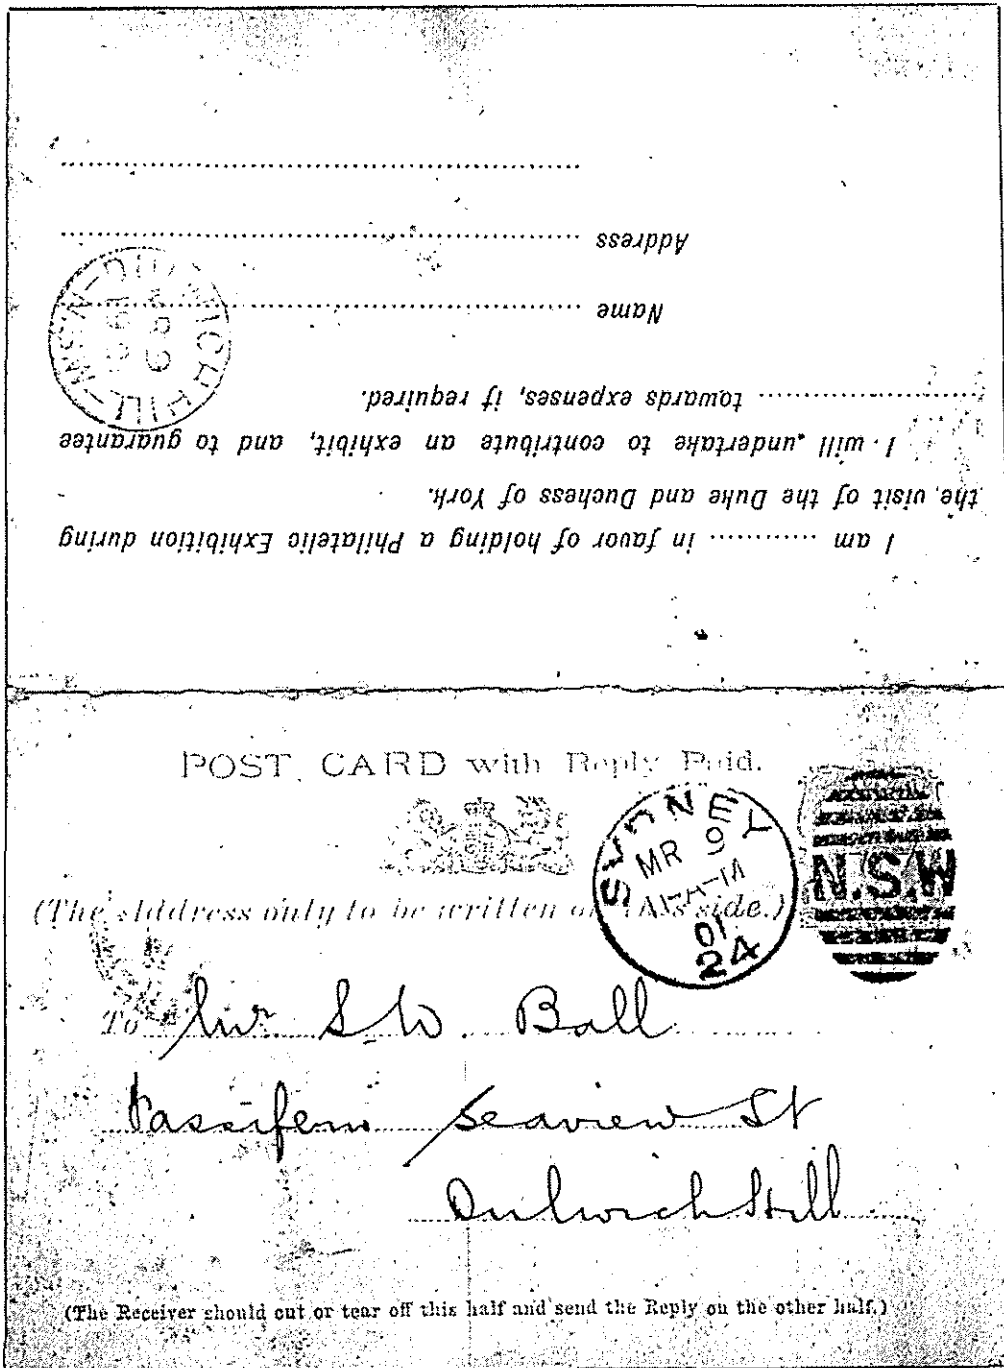 I am ............ in favor of holding a Philatelic Exhibition during
the visit of the Duke and Duchess of York.
I will undertake to contribute an exhibit, and to guarantee
........................ towards expenses, if required.
Name ............................................................
Address ............................................................
............................................................
DULWICH HILL-N.S.W
MR 9
1901
POST CARD with Reply Paid.
(The Address only to be written on this side.)
SYDNEY
MR 9
01
24
N.S.W
To Mr S. W. Ball
Fassifern Seaview St
Dulwich Hill
(The Receiver should cut or tear off this half and send the Reply on the other half.)